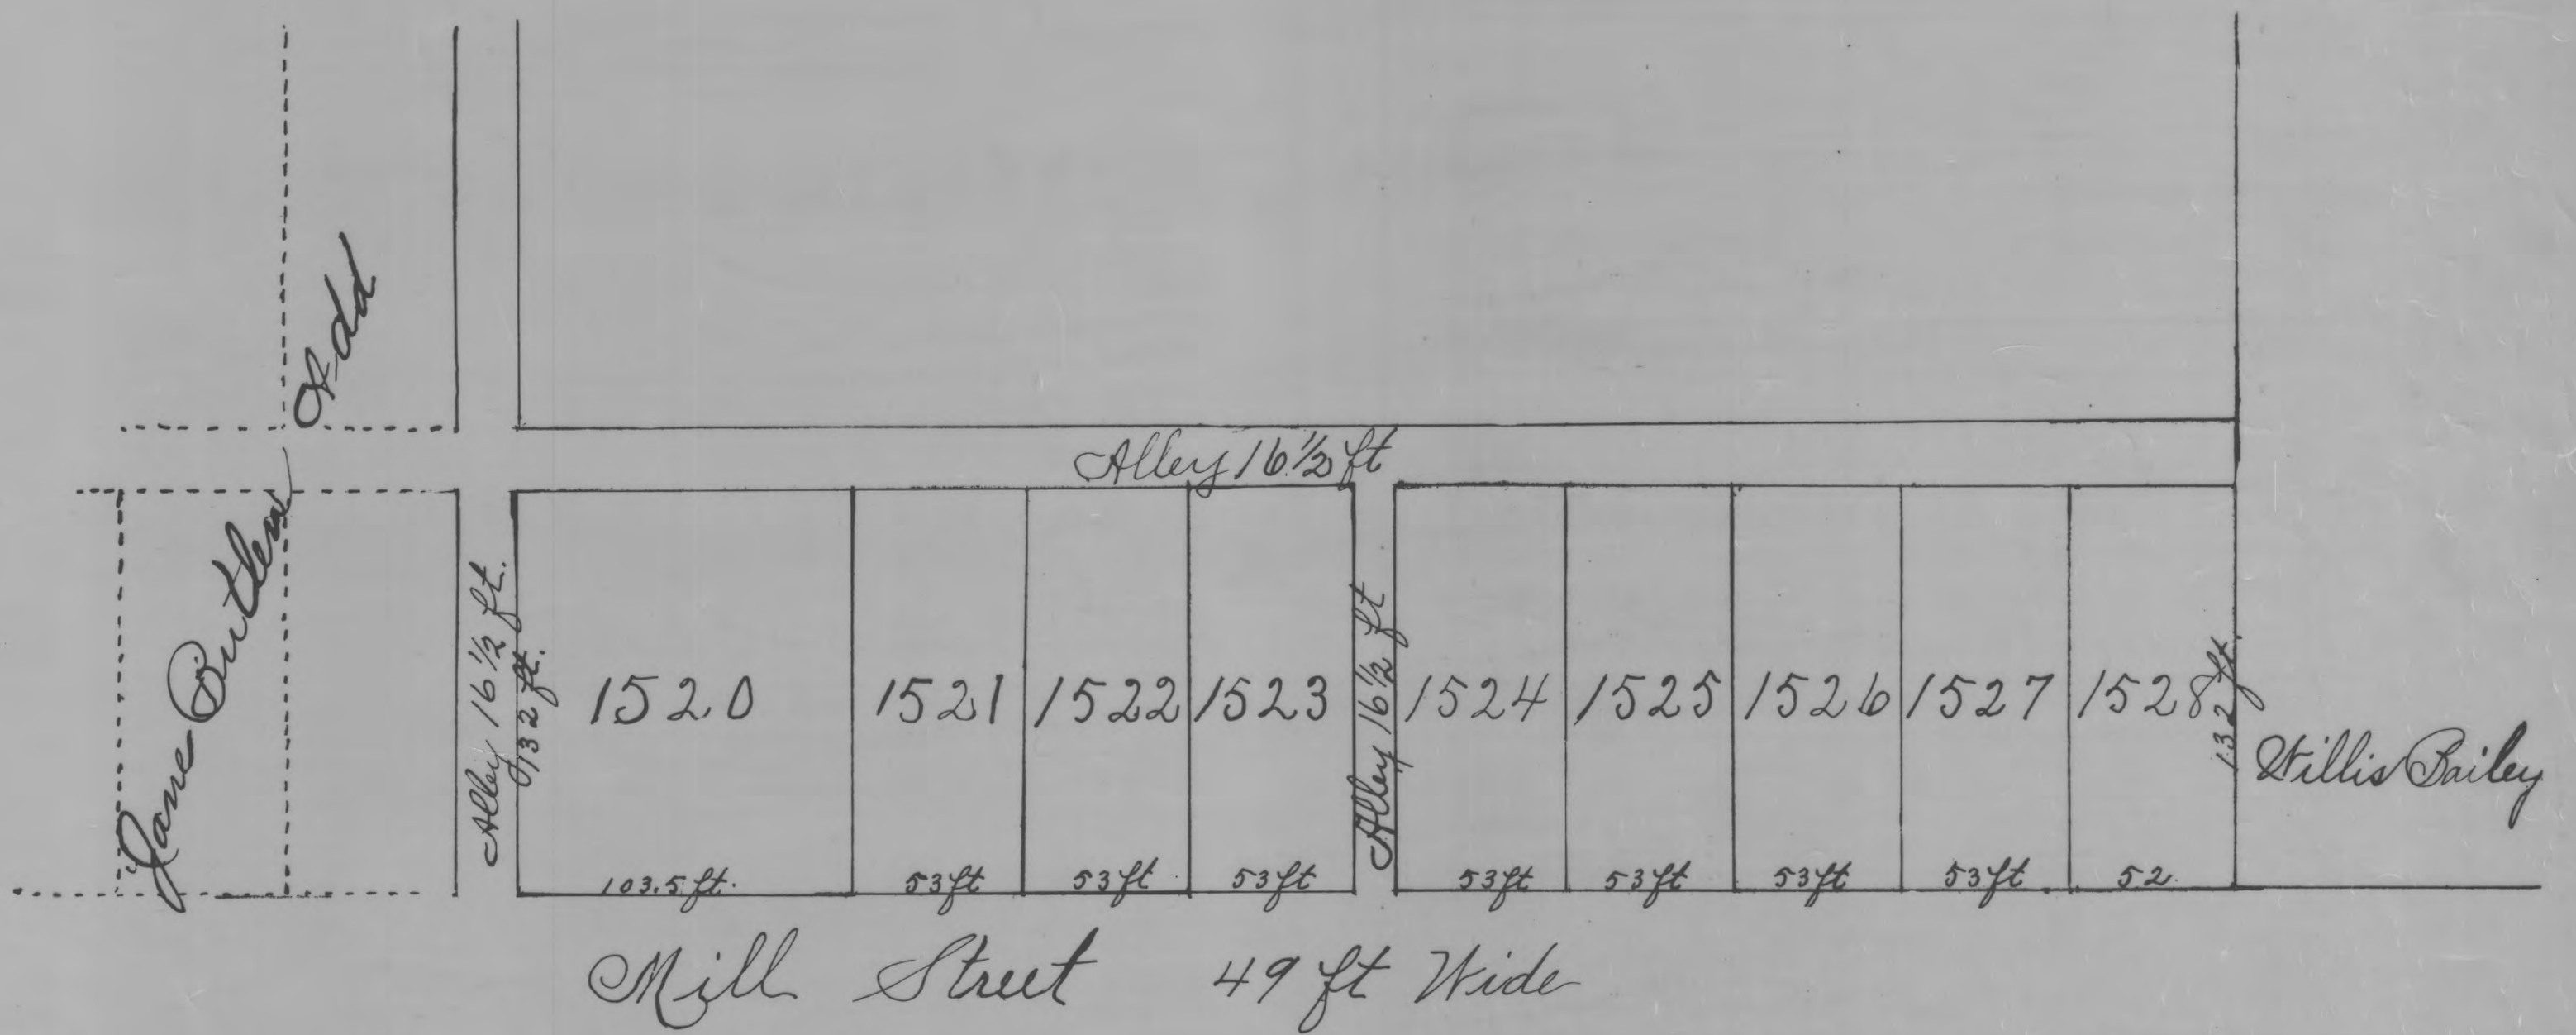 Jane Butlers Add
Alley 16 1/2 ft
Alley 16 1/2 ft.
132 ft.
1520
1521
1522
1523
Alley 16 1/2 ft
1524
1525
1526
1527
1528
132 ft.
Willis Bailey
103.5 ft.
53 ft
53 ft
53 ft
53 ft
53 ft
53 ft
53 ft
52
Mill Street 49 ft Wide